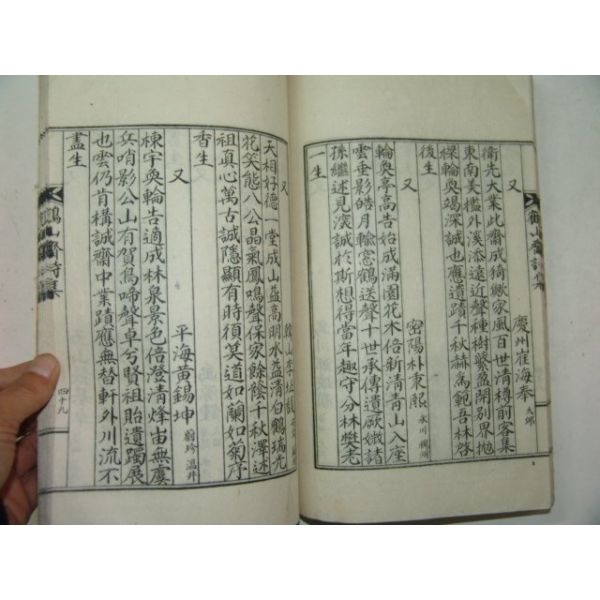 又 慶州崔海奉 大邱
衛先大業此齋成猗歟家風百世清樽前客集
東南美檻外溪添遠近聲種樹繁盈開別界拋
樑輪奐竭深誠也應遺蹟千秋赫爲範吾林啓
後生
又 密陽朴東熙 永川
輪奐亭高告始成滿園花木倍新清青山入座
雲垂影皓月臨窓鶴送聲十世承傳遺諸
孫繼述見深誠於斯想得當年趣守分林樊老
一生
又 韓山李
天相好德一堂成山益高明水益清白鶴瑞光
花笑態八公晶氣鳳鳴聲保家餘蔭千秋澤述
祖真心萬古誠隱顯有時須莫道如蘭如菊序
香生
又 平海黃錫坤 蔚珍 溫井
棟宇奐輪告適成林泉景色倍澄清烽宙無塵
兵哨影公山有賀鳥啼聲卓兮賢祖貽遺躅展
也雲仍肯構誠齋中業蹟應無替軒外川流不
盡生
鶴山齋詩集
四十九